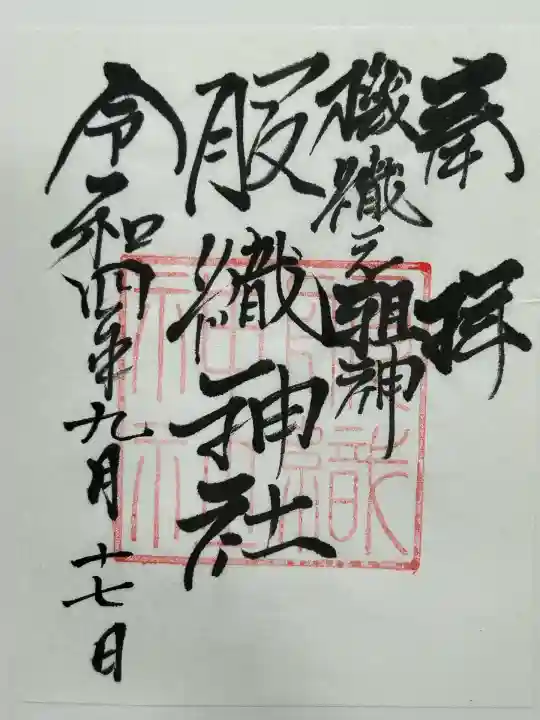 奉拝
機織元祖神
服織神社
令和四年九月十七日